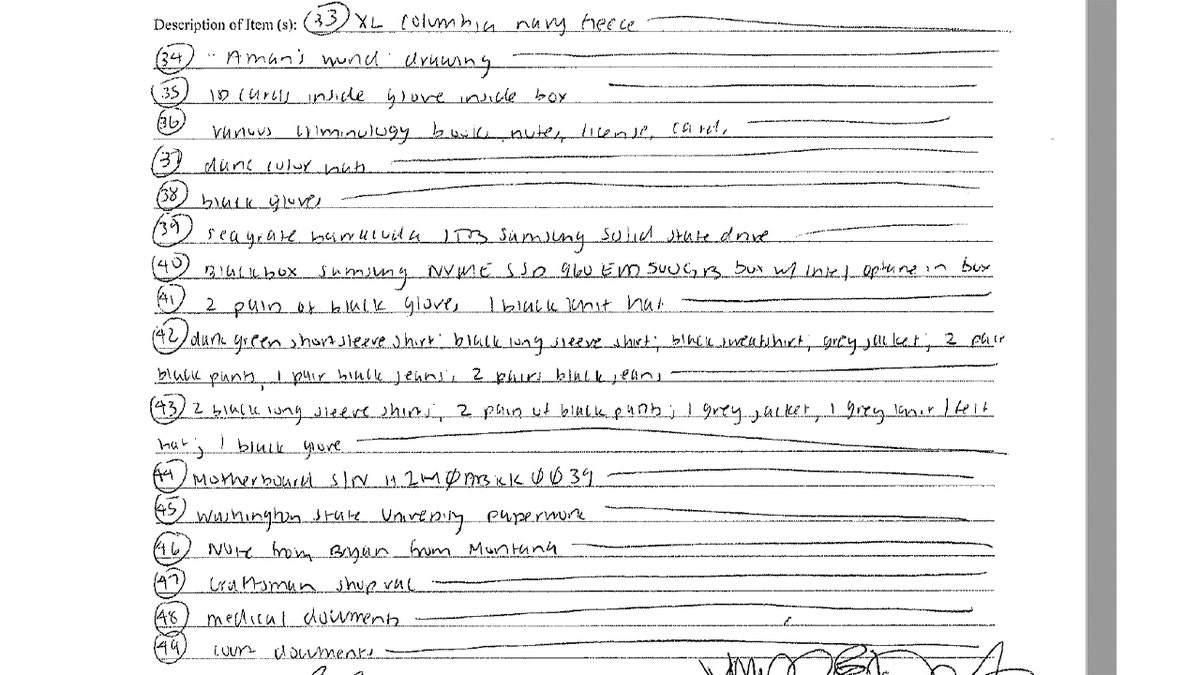 Description of Item (s): (33) XL Columbia navy fleece
(34) "Aman's mind" drawing
(35) ID cards inside glove inside box
(36) various criminology books, notes, license, card,
(37) dark color hat
(38) black gloves
(39) seagrate barracuda 1TB Samsung solid state drive
(40) Black box Samsung NVME SSD 960 EM 500GB box w/ intel optane in box
(41) 2 pair of black gloves, 1 black knit hat
(42) dark green short sleeve shirt; black long sleeve shirt; black sweatshirt; grey jacket; 2 pair
black pants, 1 pair black jeans; 2 pairs black jeans
(43) 2 black long sleeve shirts; 2 pair of black pants; 1 grey jacket, 1 grey knit / felt
hat; 1 black glove
(44) Motherboard S/N
(45) Washington State University paperwork
(46) Note from Bryan from Montana
(47) Craftsman shop vac
(48) medical documents
(49) documents